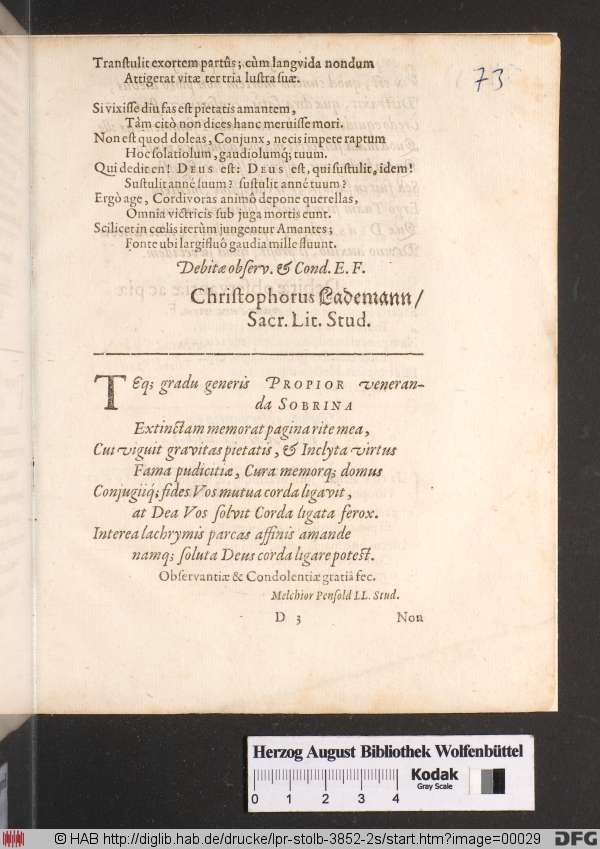 73
Transtulit exortem partûs; cùm langvida nondum
Attigerat vitæ ter tria lustra suæ.
Si vixisse diu fas est pietatis amantem,
Tàm citò non dices hanc meruisse mori.
Non est quod doleas, Conjunx, necis impete raptum
Hoc solatiolum, gaudiolumq; tuum.
Qui dedit en! DEUS est: DEUS est, qui sustulit, idem!
Sustulit anné suum? sustulit anné tuum?
Ergò age, Cordivoras animô depone querellas,
Omnia victricis sub juga mortis eunt.
Scilicet in cœlis iterùm jungentur Amantes;
Fonte ubi largifluô gaudia mille fluunt.
Debitæ observ. & Cond. E. F.
Christophorus Lademann/
Sacr. Lit. Stud.
TEq; gradu generis PROPIOR veneran-
da SOBRINA
Extinctam memorat pagina rite mea,
Cui viguit gravitas pietatis, & Inclyta virtus
Fama pudicitiæ, Cura memorq; domus
Conjugiiq́; fides. Vos mutua corda ligavit,
at Dea Vos solvit Corda ligata ferox.
Interea lachrymis parcas affinis amande
namq; soluta Deus corda ligare potest.
Observantiæ & Condolentiæ gratiâ fec.
Melchior Pensold LL. Stud.
D 3 Non
Herzog August Bibliothek Wolfenbüttel
0 1 2 3 4
Kodak
Gray Scale
© HAB http://diglib.hab.de/drucke/lpr-stolb-3852-2s/start.htm?image=00029
DFG